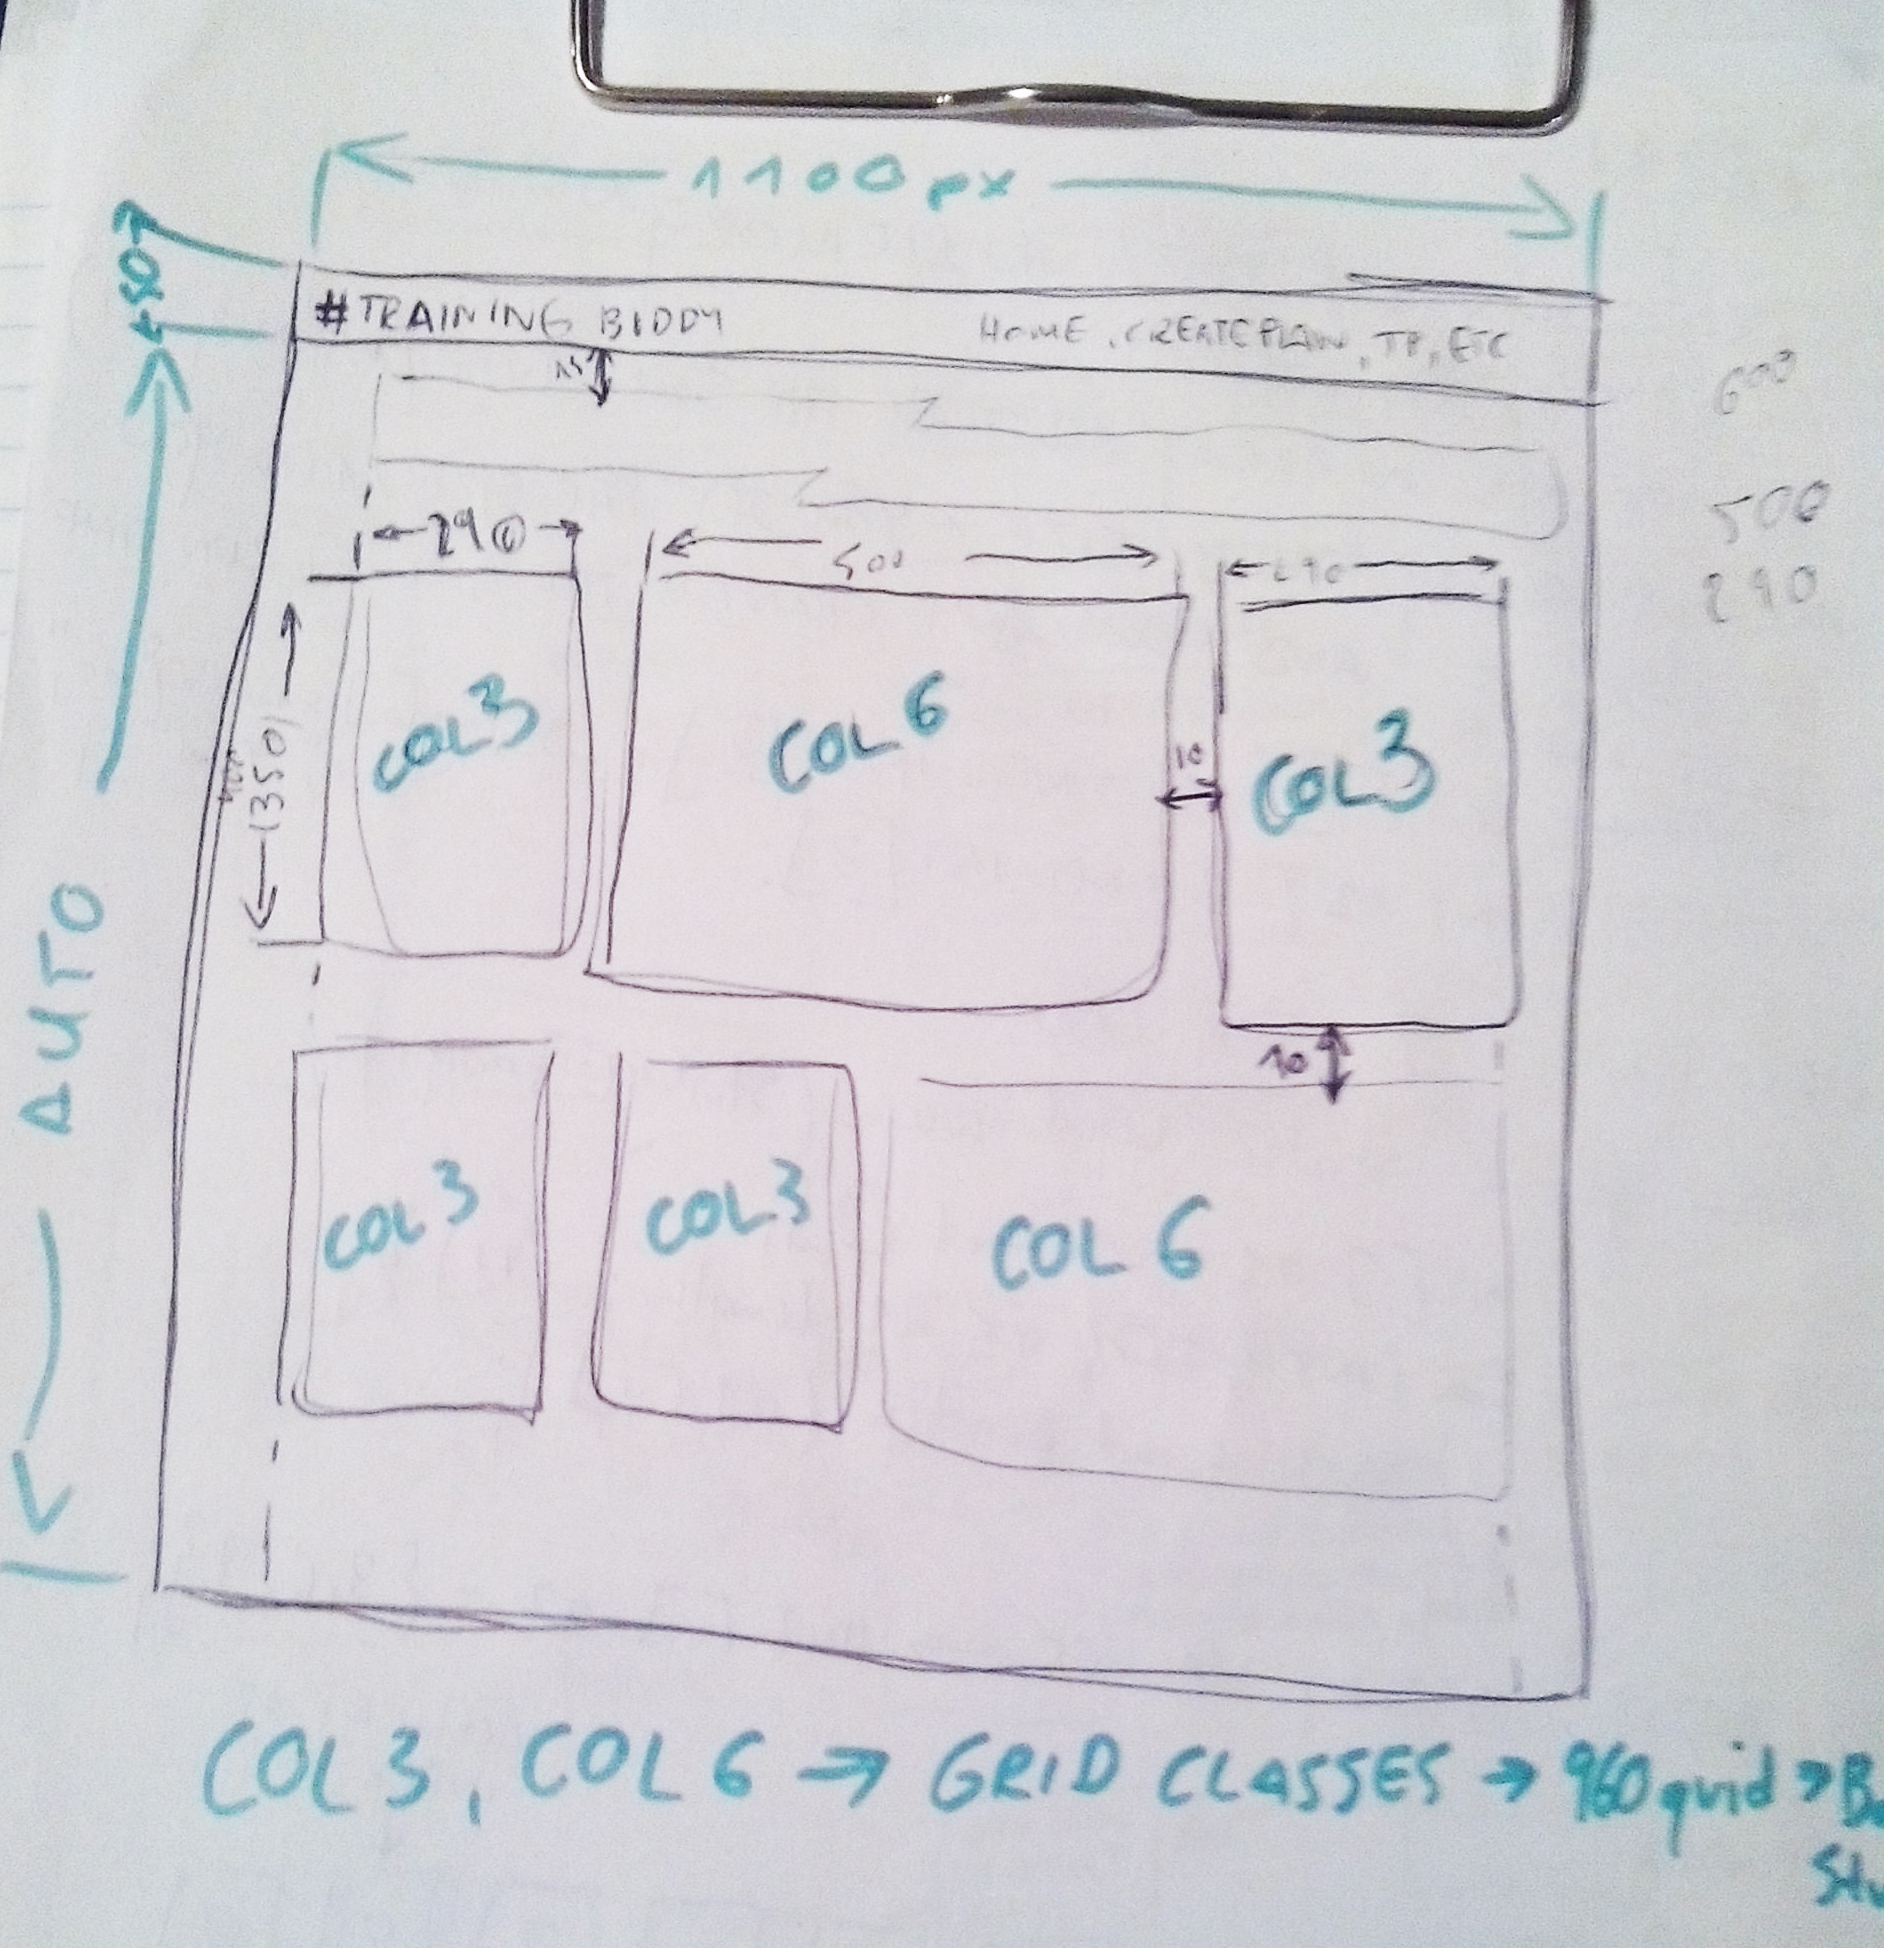 1100 px
50
# TRAINING BIDDY
HOME, CREATE PLAN, TP, ETC
15
600
500
290
290
500
290
350
COL 3
COL 6
COL 3
10
AUTO
10
COL 3
COL 3
COL 6
COL 3, COL 6 → GRID CLASSES → 960 grid →